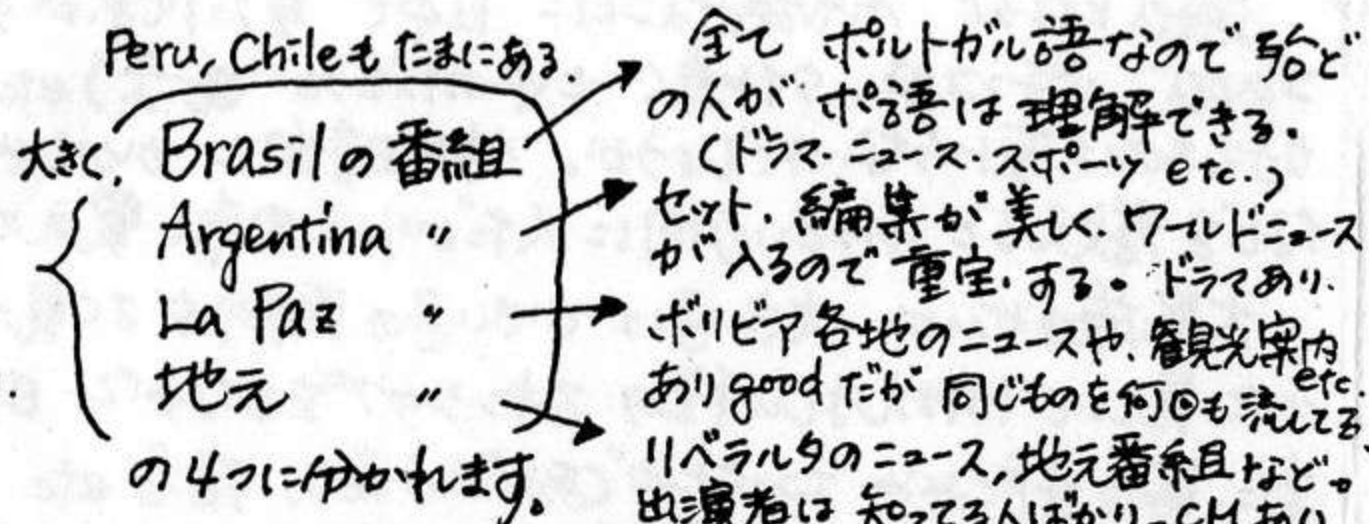 Peru, Chileも たまにある.
大きく, Brasilの番組
Argentina 〃
La Paz 〃
地元 〃
の4つに分かれます。
全て ポルトガル語なので 殆ど
の人が ポ語は 理解できる。
(ドラマ・ニュース・スポーツ etc.)
セット, 編集が 美しく, ワールドニュース
が 入るので 重宝する。 ドラマあり.
ボリビア各地のニュースや, 観光案内etc
あり goodだが 同じものを何回も流してる
リベラルタのニュース, 地元番組など。
出演者は 知ってる人ばかり。CMあり